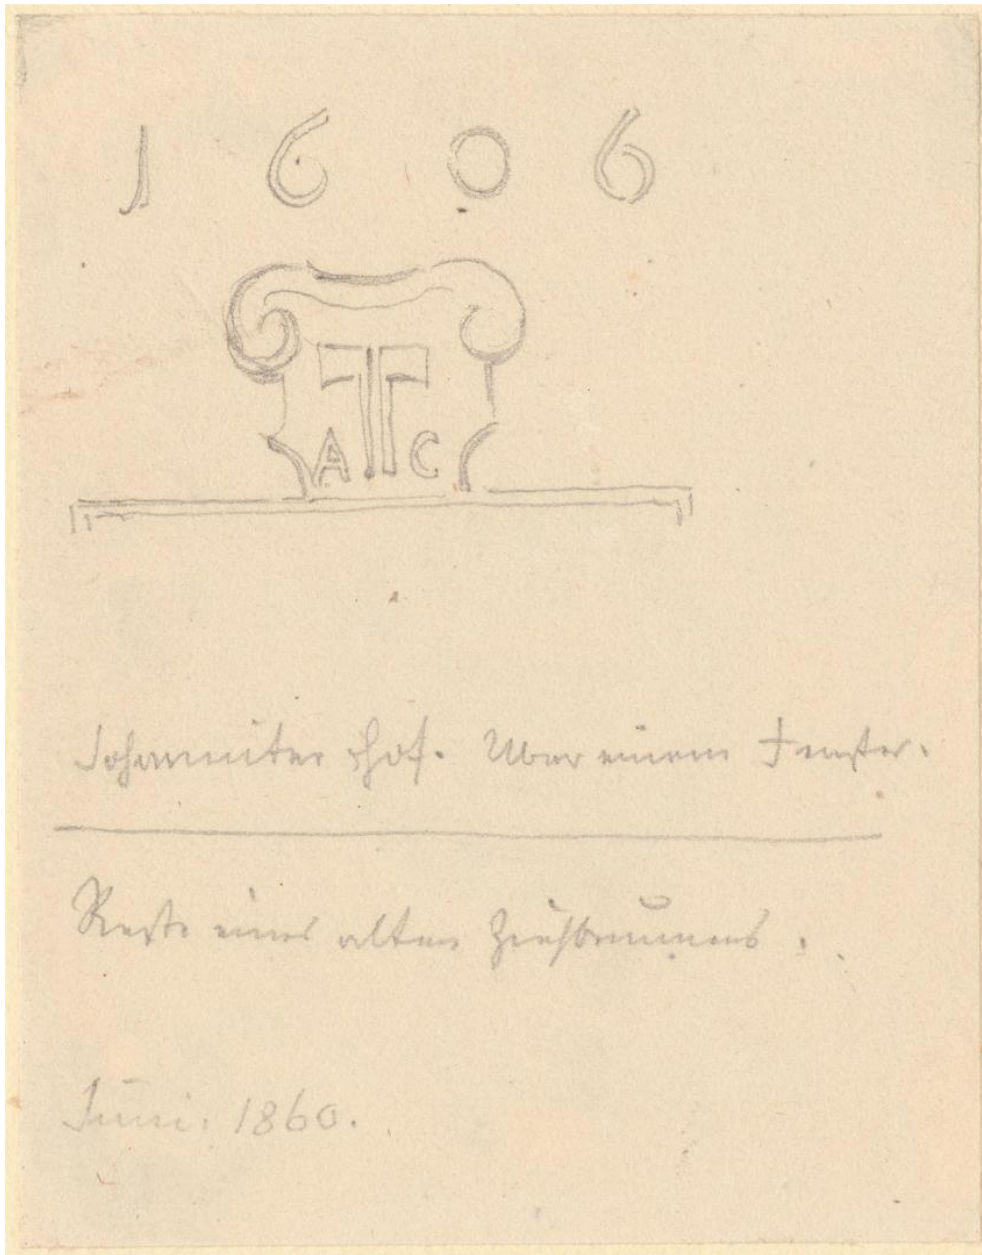 1606
A T C
Johanniter Hof. Über einem Fenster.
Reste eines alten Ziehbrunnens.
Juni. 1860.